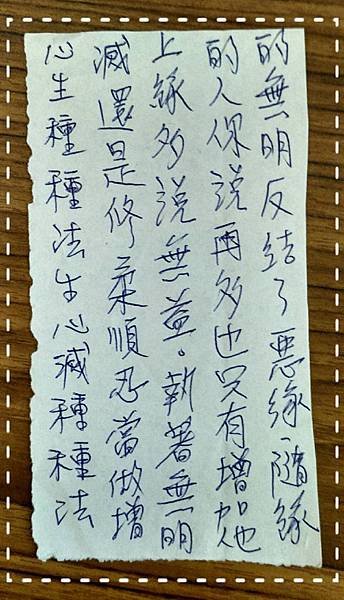 心生種種法生心滅種種法
滅還是修柔順忍當做增
上緣多說無益。執著無明
的人你說再多也只有增加他
的無明反結了惡緣,隨緣